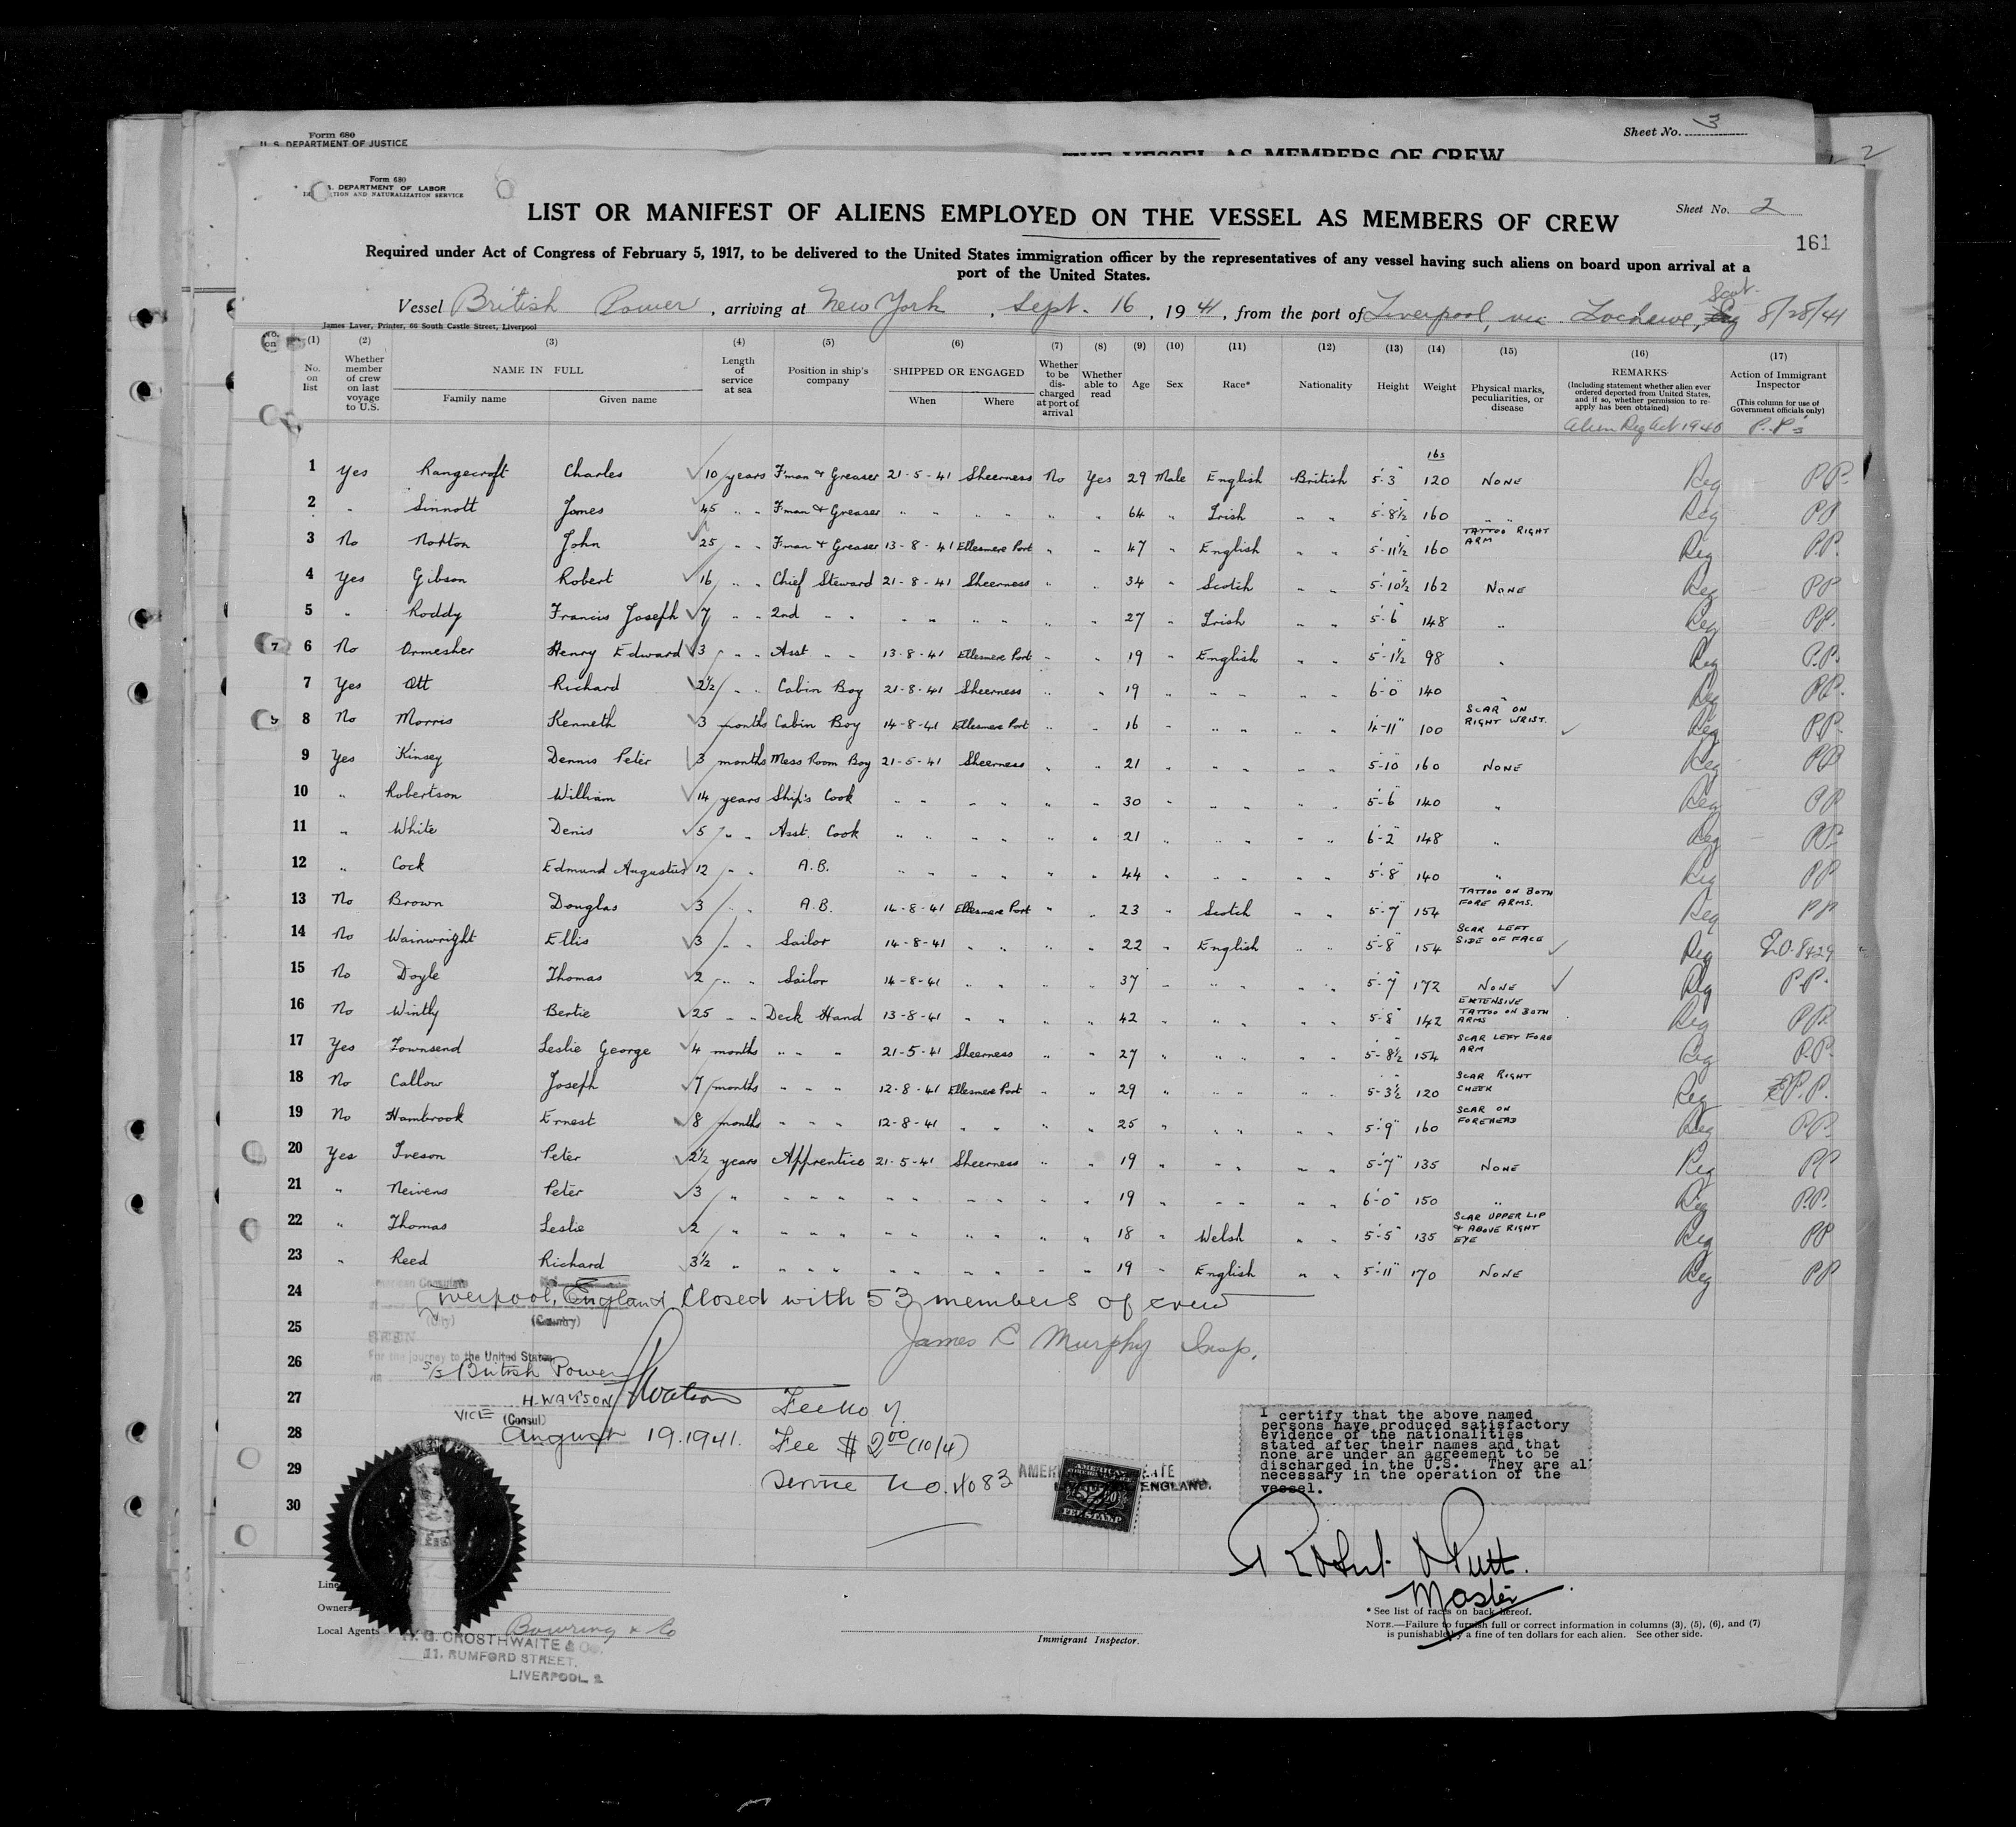 Form 680
U. S. DEPARTMENT OF JUSTICE
Sheet No. 3
THE VESSEL AS MEMBERS OF CREW
2
Form 680
DEPARTMENT OF LABOR
AND NATURALIZATION SERVICE
LIST OR MANIFEST OF ALIENS EMPLOYED ON THE VESSEL AS MEMBERS OF CREW
Sheet No. 2
161
Required under Act of Congress of February 5, 1917, to be delivered to the United States immigration officer by the representatives of any vessel having such aliens on board upon arrival at a
port of the United States.
Scot.
Vessel British Power, arriving at New York, Sept. 16, 1941, from the port of Liverpool, via Lochewe, 8/28/41
James Laver, Printer, 66 South Castle Street, Liverpool
(1) No. on list
(2) Whether member of crew on last voyage to U.S.
(3) NAME IN FULL Family name Given name
(4) Length of service at sea
(5) Position in ship's company
(6) SHIPPED OR ENGAGED When Where
(7) Whether to be discharged at port of arrival
(8) Whether able to read
(9) Age
(10) Sex
(11) Race*
(12) Nationality
(13) Height
(14) Weight
(15) Physical marks, peculiarities, or disease
(16) REMARKS (Including statement whether alien ever ordered deported from United States, and if so, whether permission to re-apply has been obtained)
(17) Action of Immigrant Inspector (This column for use of Government officials only)
Alien Reg Act 1940 P.P's
lbs
1 Yes Rangecroft Charles 10 years F'man & Greaser 21-5-41 Sheerness No Yes 29 Male English British 5'-3" 120 NONE Reg P.P.
2 " Sinnott James 45 " " F'man & Greaser " " " " " " 64 " Irish " " 5'-8½ 160 " " Reg PP
3 No Notton John 25 " " F'man & Greaser 13-8-41 Ellesmere Port " " 47 " English " " 5'-11½ 160 TATTOO RIGHT ARM Reg P.P.
4 Yes Gibson Robert 16 " " Chief Steward 21-8-41 Sheerness " " 34 " Scotch " " 5'-10½ 162 NONE Reg PP
5 " Roddy Francis Joseph 7 " " 2nd " " " " " " " " 27 " Irish " " 5'-6" 148 " Reg PP.
6 No Ormesher Henry Edward 3 " " Asst " " 13-8-41 Ellesmere Port " " 19 " English " " 5'-1½ 98 " Reg P.P.
7 Yes Ott Richard 2½ " " Cabin Boy 21-8-41 Sheerness " " 19 " " " " " 6'-0" 140 " Reg PP.
8 No Morris Kenneth 3 months Cabin Boy 14-8-41 Ellesmere Port " " 16 " " " " " 4'-11" 100 SCAR ON RIGHT WRIST. Reg P.P.
9 Yes Kinsey Dennis Peter 3 months Mess Room Boy 21-5-41 Sheerness " " 21 " " " " " 5-10 160 NONE Reg PP
10 " Robertson William 14 years Ship's Cook " " " " " " 30 " " " " " 5'-6" 140 " Reg PP
11 " White Denis 5 " " Asst. Cook " " " " " " 21 " " " " " 6'-2" 148 " Reg PP
12 " Cock Edmund Augustus 12 " " A.B. " " " " " " 44 " " " " " 5'-8" 140 " Reg PP
13 No Brown Douglas 3 " " A.B. 14-8-41 Ellesmere Port " " 23 " Scotch " " 5'-7" 154 TATTOO ON BOTH FORE ARMS. Reg PP
14 No Wainwright Ellis 3 " " Sailor 14-8-41 " " " " 22 " English " " 5'-8" 154 SCAR LEFT SIDE OF FACE Reg
15 No Doyle Thomas 2 " " Sailor 14-8-41 " " " " 37 " " " " " 5'-7" 172 NONE Reg P.P.
16 No Wintly Bertie 25 " " Deck Hand 13-8-41 " " " " 42 " " " " " 5'-8" 142 EXTENSIVE TATTOO ON BOTH ARMS Reg PP.
17 Yes Townsend Leslie George 4 months " " " 21-5-41 Sheerness " " 27 " " " " " 5'-8½ 154 SCAR LEFT FORE ARM Reg P.P.
18 No Callow Joseph 7 months " " " 12-8-41 Ellesmere Port " " 29 " " " " " 5-3½ 120 SCAR RIGHT CHEEK Reg P.P.
19 No Hambrook Ernest 8 months " " " 12-8-41 " " " " 25 " " " " " 5'-9" 160 SCAR ON FOREHEAD Reg P.P.
20 Yes Iveson Peter 2½ years Apprentice 21-5-41 Sheerness " " 19 " " " " " 5'-7" 135 NONE Reg PP
21 " Neivens Peter 3 " " " " " " " " " " 19 " " " " " 6'-0" 150 " Reg P.P.
22 " Thomas Leslie 2 " " " " " " " " " " 18 " Welsh " " 5'-5" 135 SCAR UPPER LIP & ABOVE RIGHT EYE Reg PP
23 " Reed Richard 3½ " " " " " " " " " " 19 " English " " 5'-11" 170 NONE Reg PP
24 Liverpool, England Closed with 53 members of crew
(City) (Country)
25 James C Murphy Insp.
SEEN
26 For the journey to the United States
s/s British Power
27 H. WATSON HWatson Fee No 7.
VICE (Consul)
28 August 19. 1941. Fee $ 2.00 (10/4)
29 Service No. 4083
30
AMERICAN FEE STAMP
ENGLAND.
I certify that the above named
persons have produced satisfactory
evidence of the nationalities
stated after their names and that
none are under an agreement to be
discharged in the U.S. They are al
necessary in the operation of the
vessel.
Master
Line
Owners
Local Agents Bowring & Co
CROSTHWAITE & Co.
11, RUMFORD STREET,
LIVERPOOL 2
Immigrant Inspector.
* See list of races on back hereof.
NOTE.—Failure to furnish full or correct information in columns (3), (5), (6), and (7)
is punishable by a fine of ten dollars for each alien. See other side.